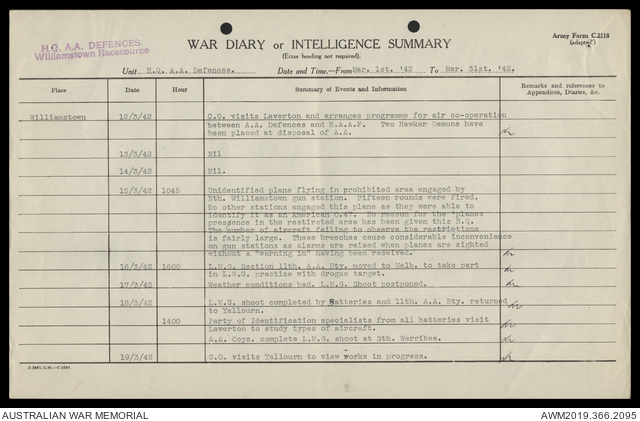 H.Q. A.A. DEFENCES
Williamstown Racecourse
Army Form C.2118
WAR DIARY or INTELLIGENCE SUMMARY
(Erase heading not required).
Unit H.Q. A.A. Defences. Date and Time.—From Mar. 1st. '42 To Mar. 31st. '42.
Place Date Hour Summary of Events and Information Remarks and references to Appendices, Diaries, &c.
Williamstown 12/3/42 C.O. visits Laverton and arranges programme for air co-operation
between A.A. Defences and R.A.A.F. Two Hawker Demons have
been placed at disposal of A.A.
13/3/42 Nil
14/3/42 Nil.
15/3/42 1045 Unidentified plane flying in prohibited area engaged by
Nth. Williamstown gun station. Fifteen rounds were fired.
No other stations engaged this plane as they were able to
identify it as an American C.47. No reason for the 'planes
presdence in the restircted area has been given this H.Q.
The number of aircraft failing to observe the restrictions
is fairly large. These breeches cause considerable inconvenience
on gun stations as alarms are raised when planes are sighted
without a "warning in" having been received.
16/3/42 1600 L.M.G. Section 11th. A.A. Bty. moved to Melb. to take part
in L.M.G. practice with drogue target.
17/3/42 Weather conditions bad. L.M.G. Shoot postponed.
18/3/42 L.M.G. shoot completed by Batteries and 11th. A.A. Bty. returned
to Yallourn.
1400 Party of Identification specialists from all batteries visit
Laverton to study types of aircraft.
A.A. Coys. complete L.M.G. shoot at Sth. Werribee.
19/3/42 C.O. visits Yallourn to view works in progress.
AUSTRALIAN WAR MEMORIAL
AWM2019.366.2095